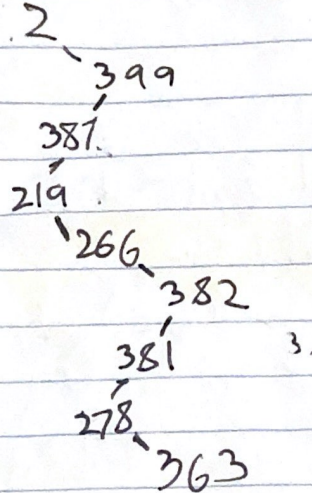 2
399
387
219
266
382
381
278
363
3.